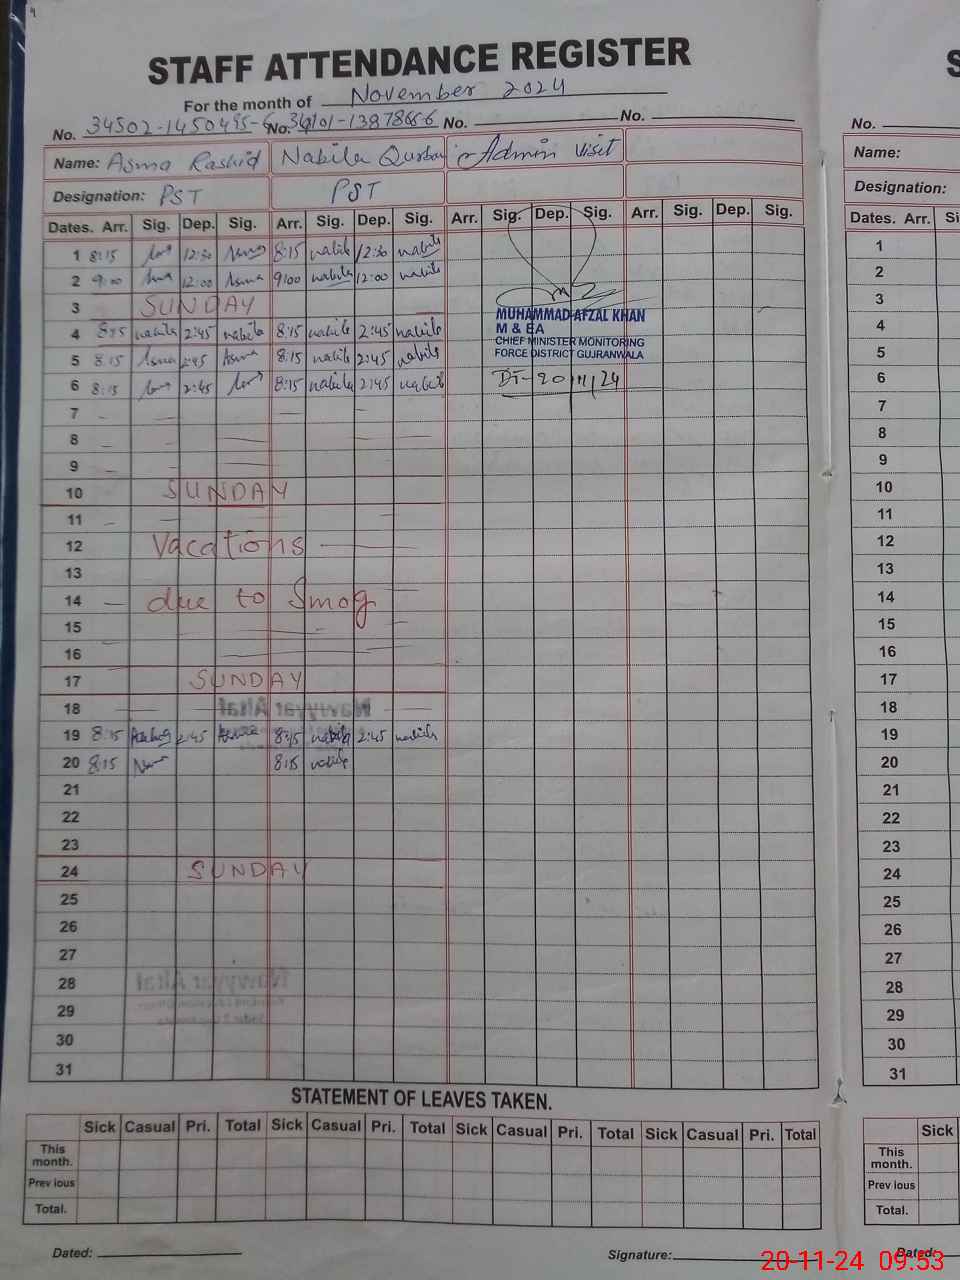 STAFF ATTENDANCE REGISTER
For the month of November 2024
No. 34502-1450495-6 No. 34101-1387866-6 No. No.
Name: Asma Rashid Nabila Qurban Admin Visit
Designation: PST PST
Dates. Arr. Sig. Dep. Sig. Arr. Sig. Dep. Sig. Arr. Sig. Dep. Sig. Arr. Sig. Dep. Sig.
1 8:15 12:30 8:15 nabila 12:30 nabila
2 9:00 12:00 Asma 9:00 nabila 12:00 nabila
3 SUNDAY
4 8:15 nabila 2:45 nabila 8:15 nabila 2:45 nabila
5 8:15 Asma 2:45 Asma 8:15 nabila 2:45 nabila
6 8:15 2:45 8:15 nabila 2:45 nabila
MUHAMMAD AFZAL KHAN
M & EA
CHIEF MINISTER MONITORING
FORCE DISTRICT GUJRANWALA
DT-20/11/24
7
8
9
10 SUNDAY
11
12 Vacations
13
14 due to Smog
15
16
17 SUNDAY
18
19 8:15 2:45 8:15 nabila 2:45 nabila
20 8:15 8:15 nabila
21
22
23
24 SUNDAY
25
26
27
28
29
30
31
STATEMENT OF LEAVES TAKEN.
Sick Casual Pri. Total Sick Casual Pri. Total Sick Casual Pri. Total Sick Casual Pri. Total
This month.
Previous
Total.
Dated: Signature:
S
No.
Name:
Designation:
Dates. Arr. Si
1
2
3
4
5
6
7
8
9
10
11
12
13
14
15
16
17
18
19
20
21
22
23
24
25
26
27
28
29
30
31
Sick
This month.
Previous
Total.
Dated:
20-11-24 09:53